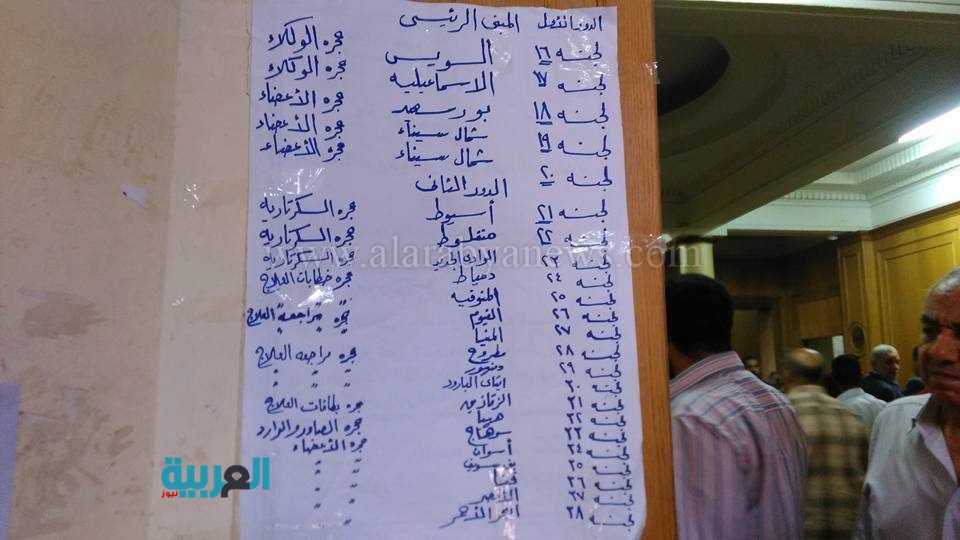 الدور الأول المبنى الرئيسى
لجنه ١٦ السويس حجره الوكلاء
لجنه ١٧ الاسماعيليه حجره الوكلاء
لجنه ١٨ بورسعيد حجره الأعضاء
لجنه ١٩ شمال سيناء حجره الأعضاء
لجنه ٢٠ شمال سيناء حجره الأعضاء
الدور الثانى
لجنه ٢١ أسيوط حجره السكرتاريه
لجنه ٢٢ منفلوط حجره السكرتاريه
لجنه ٢٣ الوادى الجديد حجره السكرتاريه
لجنه ٢٤ دمياط حجره خطابات العلاج
لجنه ٢٥ المنوفيه " "
لجنه ٢٦ الفيوم حجره مراجعه العلاج
لجنه ٢٧ المنيا " "
لجنه ٢٨ مطروح حجره مراجعه العلاج
لجنه ٢٩ دمنهور " " "
لجنه ٣٠ ايتاى البارود " " "
لجنه ٣١ الزقازيق حجره بطاقات العلاج
لجنه ٣٢ ههيا حجره الصادر والوارد
لجنه ٣٣ سوهاج حجره الأعضاء
لجنه ٣٤ أسوان " "
لجنه ٣٥
لجنه ٣٦ قنا " "
لجنه ٣٧ الأقصر
لجنه ٣٨ البحر الأحمر "
www.alarabyanews.com
العربية
نيوز